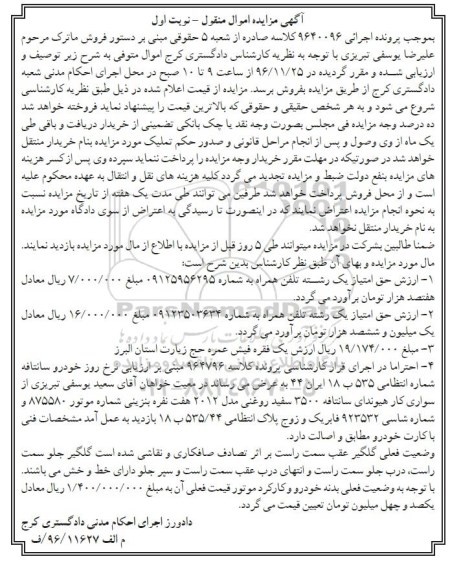 آگهی مزایده اموال منقول - نوبت اول
بموجب پرونده اجرائی ۹۶۴۰۰۹۶ کلاسه صادره از شعبه ۵ حقوقی مبنی بر دستور فروش ماترک مرحوم
علیرضا یوسفی تبریزی با توجه به نظریه کارشناس دادگستری کرج اموال متوفی به شرح زیر توصیف و
ارزیابی شده و مقرر گردیده در ۹۶/۱۱/۲۵ از ساعت ۹ تا ۱۰ صبح در محل اجرای احکام مدنی شعبه
دادگستری کرج از طریق مزایده بفروش برسد. مزایده از قیمت اعلام شده در ذیل طبق نظریه کارشناسی
شروع می شود و به هر شخص حقیقی و حقوقی که بالاترین قیمت را پیشنهاد نماید فروخته خواهد شد
ده درصد وجه مزایده فی مجلس بصورت وجه نقد یا چک بانکی تضمینی از خریدار دریافت و باقی طی
یک ماه از وی وصول و پس از انجام مراحل قانونی و صدور حکم تملیک مورد مزایده بنام خریدار منتقل
خواهد شد در صورتیکه در مهلت مقرر خریدار وجه مزایده را پرداخت ننماید سپرده وی پس از کسر هزینه
های مزایده بنفع دولت ضبط و مزایده تجدید می گردد کلیه هزینه های نقل و انتقال به عهده محکوم علیه
است و از محل فروش پرداخت خواهد شد طرفین می توانند طی مدت یک هفته از تاریخ مزایده نسبت
به نحوه انجام مزایده اعتراض نمایند که در اینصورت تا رسیدگی به اعتراض از سوی دادگاه مورد مزایده
به نام خریدار منتقل نخواهد شد.
ضمنا طالبین بشرکت در مزایده میتوانند طی ۵ روز قبل از مزایده با اطلاع از مال مورد مزایده بازدید نمایند.
مال مورد مزایده و بهای آن طبق نظر کارشناس بدین شرح است:
۱- ارزش حق امتیاز یک رشته تلفن همراه به شماره ۰۹۱۲۵۹۵۶۲۹۵ مبلغ ۷/۰۰۰/۰۰۰ ریال معادل
هفتصد هزار تومان برآورد می گردد.
۲- ارزش حق امتیاز یک رشته تلفن همراه به شماره ۰۹۱۲۳۵۰۳۶۳۴ مبلغ ۱۶/۰۰۰/۰۰۰ ریال معادل
یک میلیون و ششصد هزار تومان برآورد می گردد.
۳- مبلغ ۱۹/۱۷۴/۰۰۰ ریال ارزش یک فقره فیش عمره حج زیارت استان البرز
۴- احتراما در اجرای قرار کارشناسی پرونده کلاسه ۹۶۴۷۹۶ مبنی بر ارزیابی نرخ روز خودرو سانتافه
شماره انتظامی ۵۳۵ ب ۱۸ ایران ۴۴ به عرض می رساند در معیت خواهان آقای سعید یوسفی تبریزی از
سواری کار هیوندای سانتافه ۳۵۰۰ سفید روغنی مدل ۲۰۱۲ هفت نفره بنزینی شماره موتور ۸۷۵۵۸۰ و
شماره شاسی ۹۲۳۵۳۲ فابریک و زوج پلاک انتظامی ۵۳۵/۴۴ ب ۱۸ بازدید به عمل آمد مشخصات فنی
با کارت خودرو مطابق و اصالت دارد.
وضعیت فعلی گلگیر عقب سمت راست بر اثر تصادف صافکاری و نقاشی شده است گلگیر جلو سمت
راست، درب جلو سمت راست و انتهای درب عقب سمت راست و سپر جلو دارای خط و خش می باشند.
با توجه به وضعیت فعلی بدنه خودرو و کارکرد موتور قیمت فعلی آن به مبلغ ۱/۴۰۰/۰۰۰/۰۰۰ ریال معادل
یکصد و چهل میلیون تومان تعیین قیمت می گردد.
دادورز اجرای احکام مدنی دادگستری کرج
م الف ۹۶/۱۱۶۲۷/ف